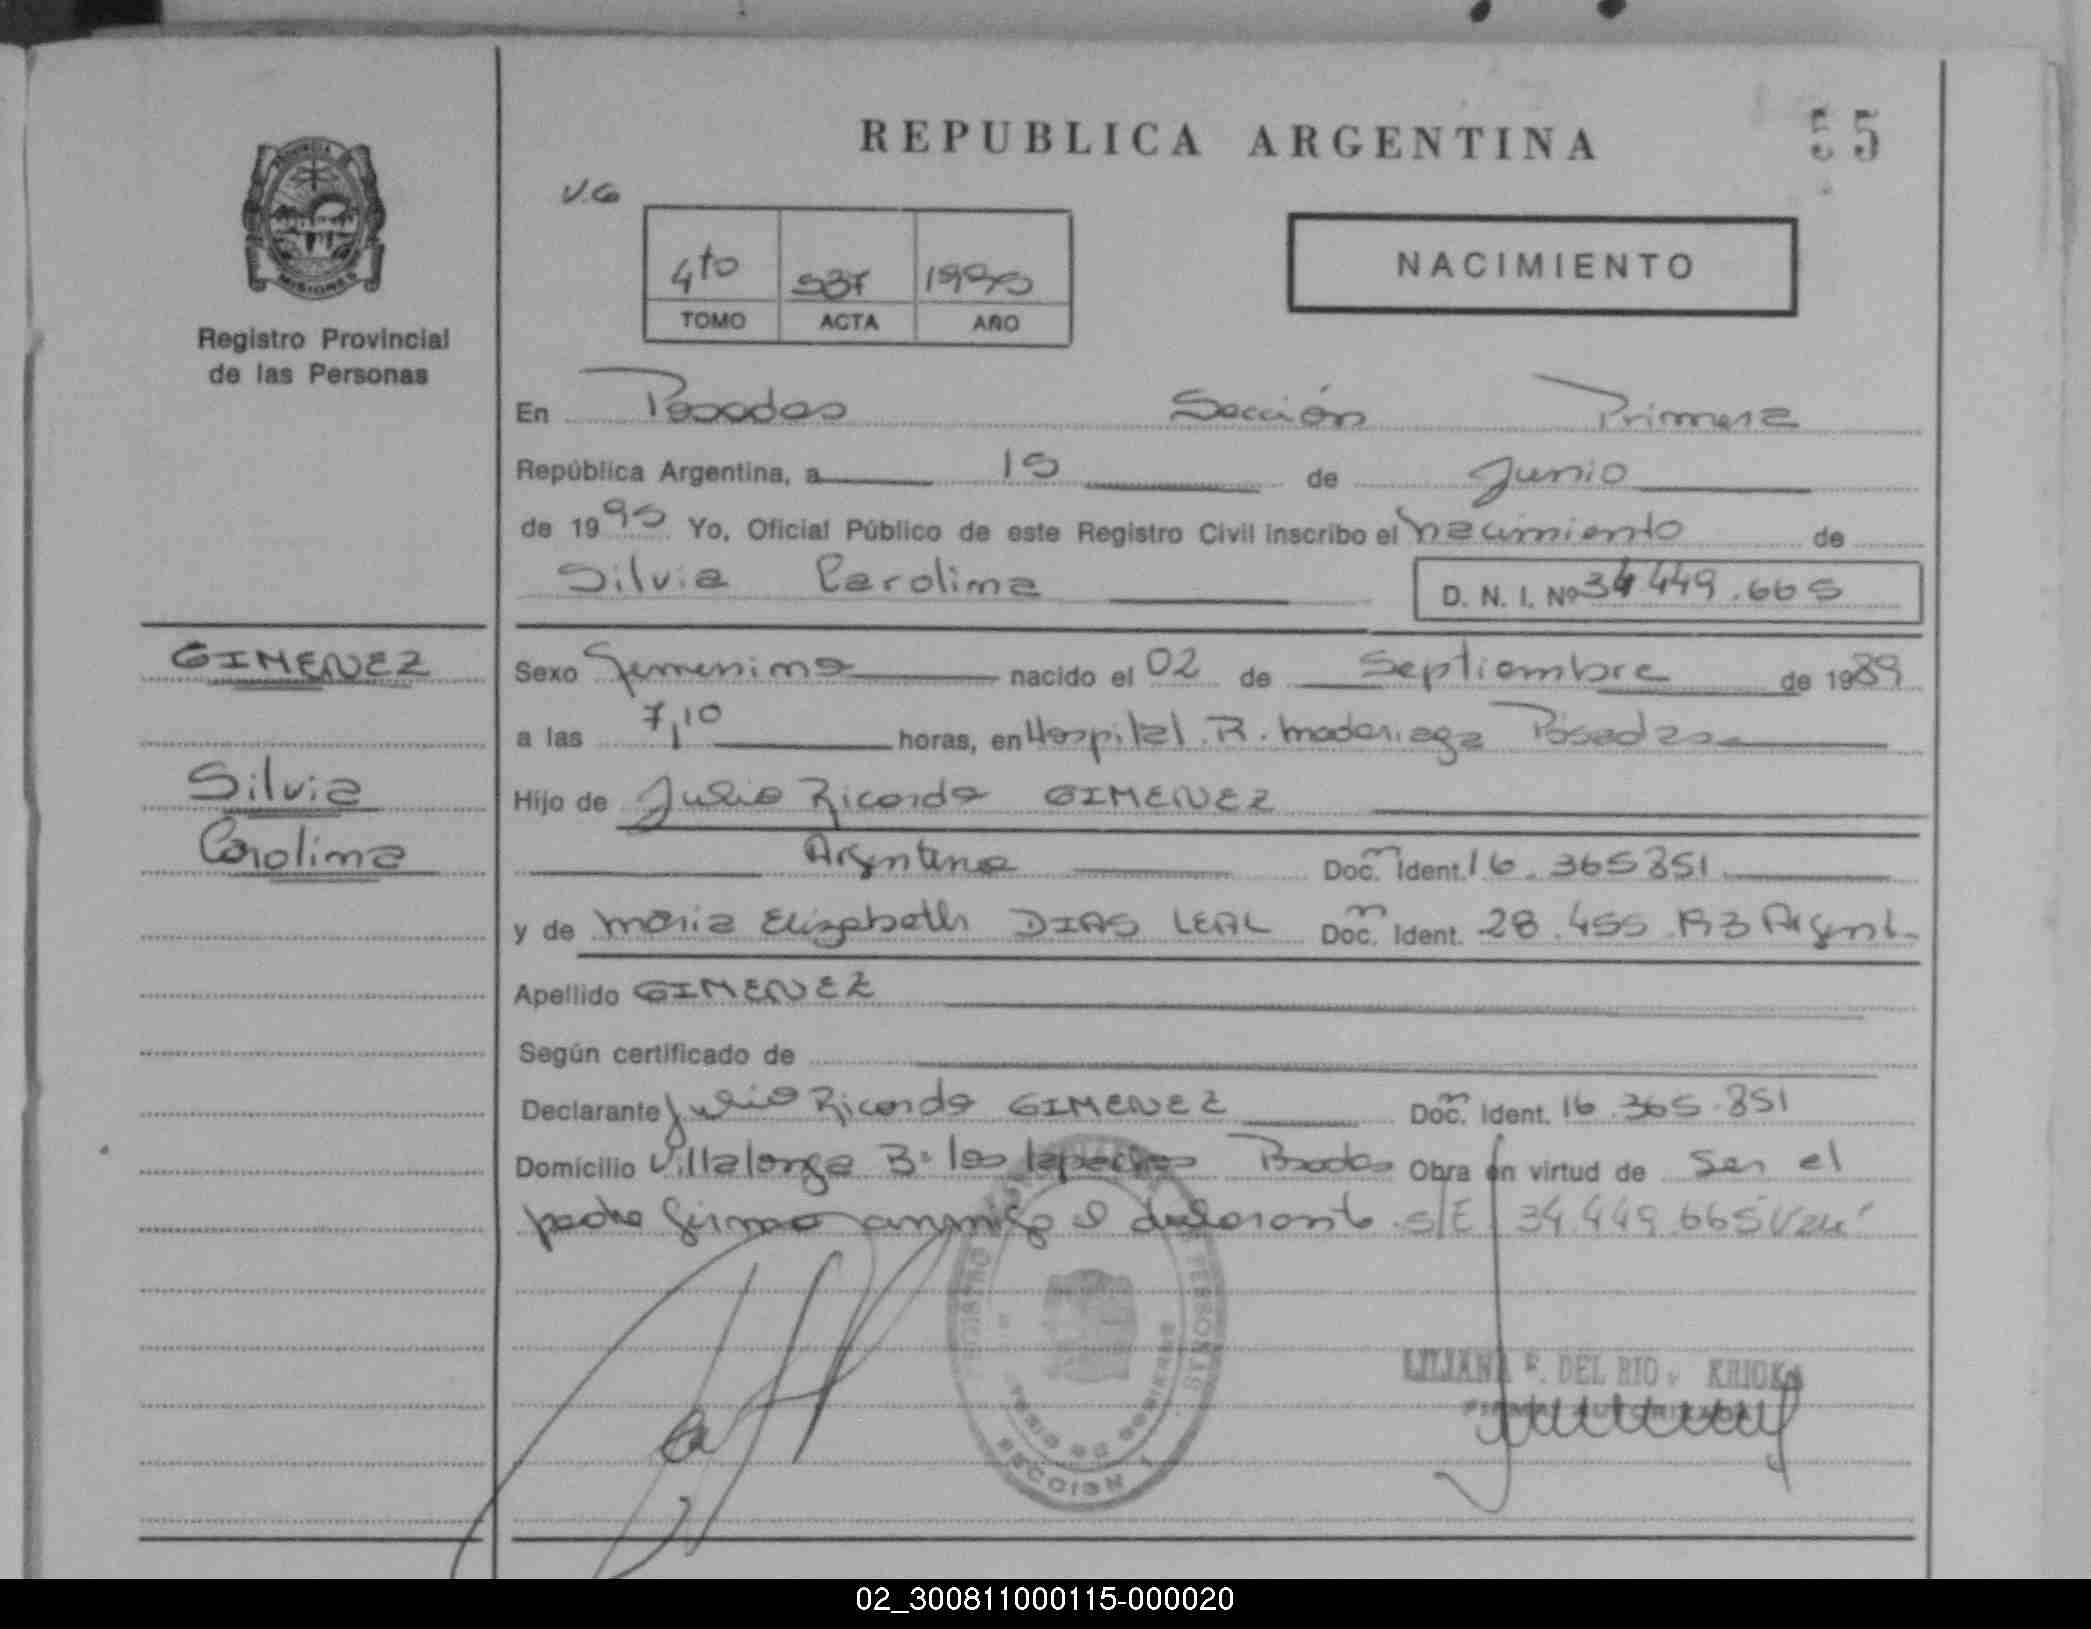 REPUBLICA ARGENTINA
55
PROVINCIA
MISIONES
Registro Provincial
de las Personas
V.G
4to 537 1995
TOMO ACTA AÑO
NACIMIENTO
En Posadas Sección Primera
República Argentina, a 15 de Junio
de 1995 Yo, Oficial Público de este Registro Civil inscribo el nacimiento de
Silvia Carolina D. N. I. Nº 34 449.665
GIMENEZ
Sexo Femenino nacido el 02 de Septiembre de 1989
a las 7,10 horas, en Hospital R. Madariaga Posadas
Silvia
Hijo de Julio Ricardo GIMENEZ
Carolina
Argentino Doc. Ident. 16.365851
y de Maria Elizabeth DIAS LEAL Doc. Ident. 28.455.193 Argent.
Apellido GIMENEZ
Según certificado de
Declarante Julio Ricardo GIMENEZ Doc. Ident. 16.365.851
Domicilio Villalonga Bº los lapachos Posadas Obra en virtud de Ser el
padre firmao conmigo el declarante S/E 34.449.665 Vale
REGISTRO PERSONAS
SECCION 1
LILIANA F. DEL RIO KRICKA
FIRMA AUTORIZADA
02_300811000115-000020